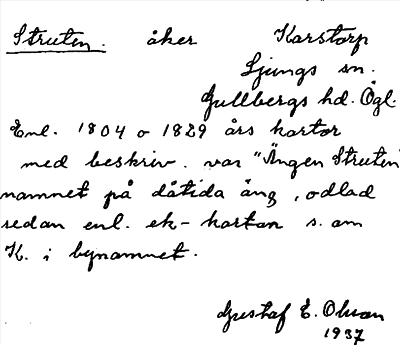 Struten. åker Karstorp
Ljungs sn.
Gullbergs hd. Ögl.
Enl. 1804 o 1829 års kartor
med beskriv. var "Ängen Struten
namnet på dåtida äng, odlad
sedan enl. ek-kartan s. om
K. i bynamnet.
Gustaf E. Olsson
1937